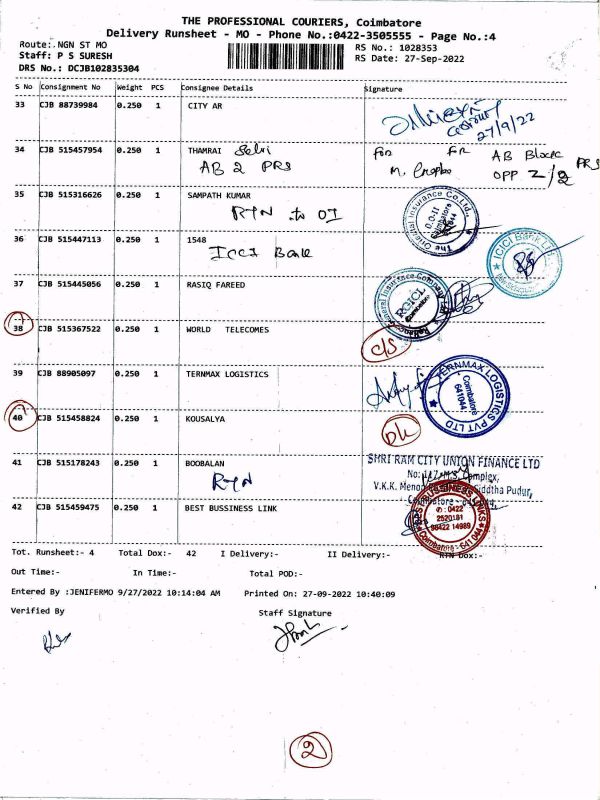 THE PROFESSIONAL COURIERS, Coimbatore
Delivery Runsheet - MO - Phone No.:0422-3505555 - Page No.:4
Route:.NGN ST MO
Staff: P S SURESH
DRS No.: DCJB102835304
RS No.: 1028353
RS Date: 27-Sep-2022
S No Consignment No Weight PCS Consignee Details Signature
33 CJB 88739984 0.250 1 CITY AR
27/9/22
34 CJB 515457954 0.250 1 THAMRAI Selvi
AB 2 PRS
for
AB Block PRS
OPP 2/2
35 CJB 515316626 0.250 1 SAMPATH KUMAR
RTN to OI
The Oriental Insurance Co.Ltd.,
Coimbatore
36 CJB 515447113 0.250 1 1548
ICICI Bank
ICICI Bank Ltd
37 CJB 515445056 0.250 1 RASIQ FAREED
Reliance General Insurance Company
RGICL
38 CJB 515367522 0.250 1 WORLD TELECOMES
C/S
39 CJB 88905097 0.250 1 TERNMAX LOGISTICS
TERNMAX LOGISTICS PVT LTD
Coimbatore
641044
40 CJB 515458824 0.250 1 KOUSALYA
DL
41 CJB 515178243 0.250 1 BOOBALAN
RTN
SHRI RAM CITY UNION FINANCE LTD
Complex,
V.K.K. Menon Siddha Pudur,
42 CJB 515459475 0.250 1 BEST BUSSINESS LINK
BEST BUSSINESS LINKS
0422
2520181
98422 14989
Coimbatore - 641 044
Tot. Runsheet:- 4 Total Dox:- 42 I Delivery:- II Delivery:- RTN Dox:-
Out Time:- In Time:- Total POD:-
Entered By :JENIFERMO 9/27/2022 10:14:04 AM Printed On: 27-09-2022 10:40:09
Verified By Staff Signature
2